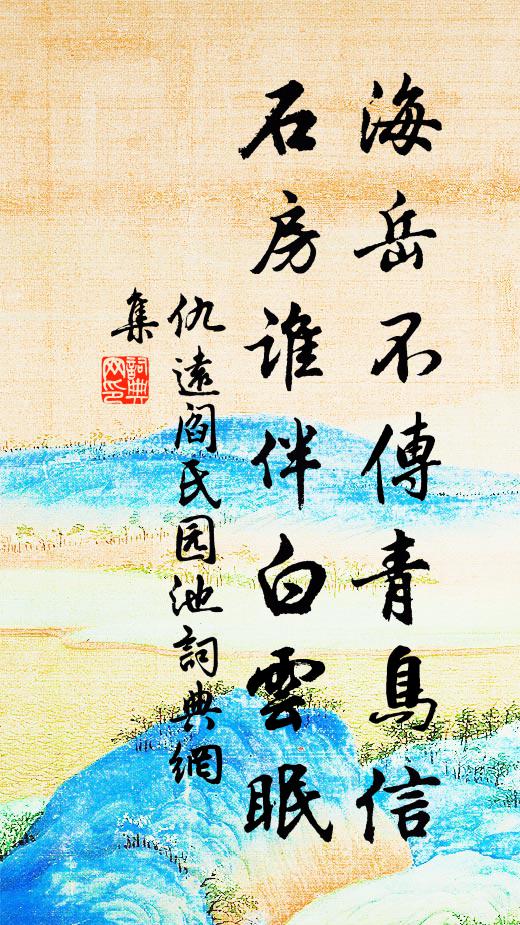 海岳不傳青鳥信
石房誰伴白雲眠
仇遠閻氏园池詞典網
集
詞典
网印